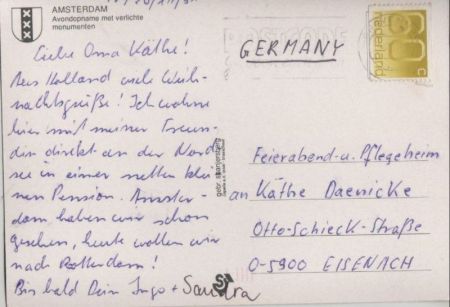 AMSTERDAM
Avondopname met verlichte
monumenten
Liebe Oma Käthe!
Aus Holland viele Weih-
nachtsgrüße! Ich wohne
hier mit meiner Freun-
din direkt an der Nord-
see in einer netten klei-
nen Pension. Amster-
dam haben wir schon
gesehen, heute wollen wir
nach Rotterdam!
Bis bald Dein Ingo + Sandra
GERMANY
nederland
Feierabend-u. Pflegeheim
an Käthe Daenicke
Otto-Schieck-Straße
O-5900 EISENACH